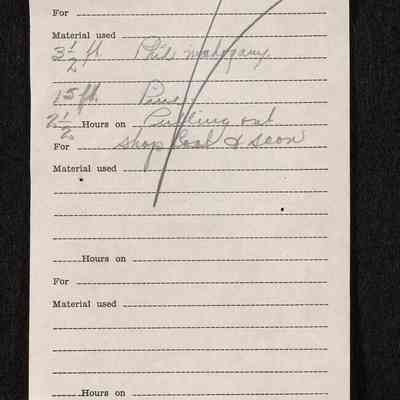 For
Material used
3 1/2 ft Phil mahogany
15 ft. Pine
2 1/2 Hours on Putting out
For shop &
Material used
Hours on
For
Material used
Hours on